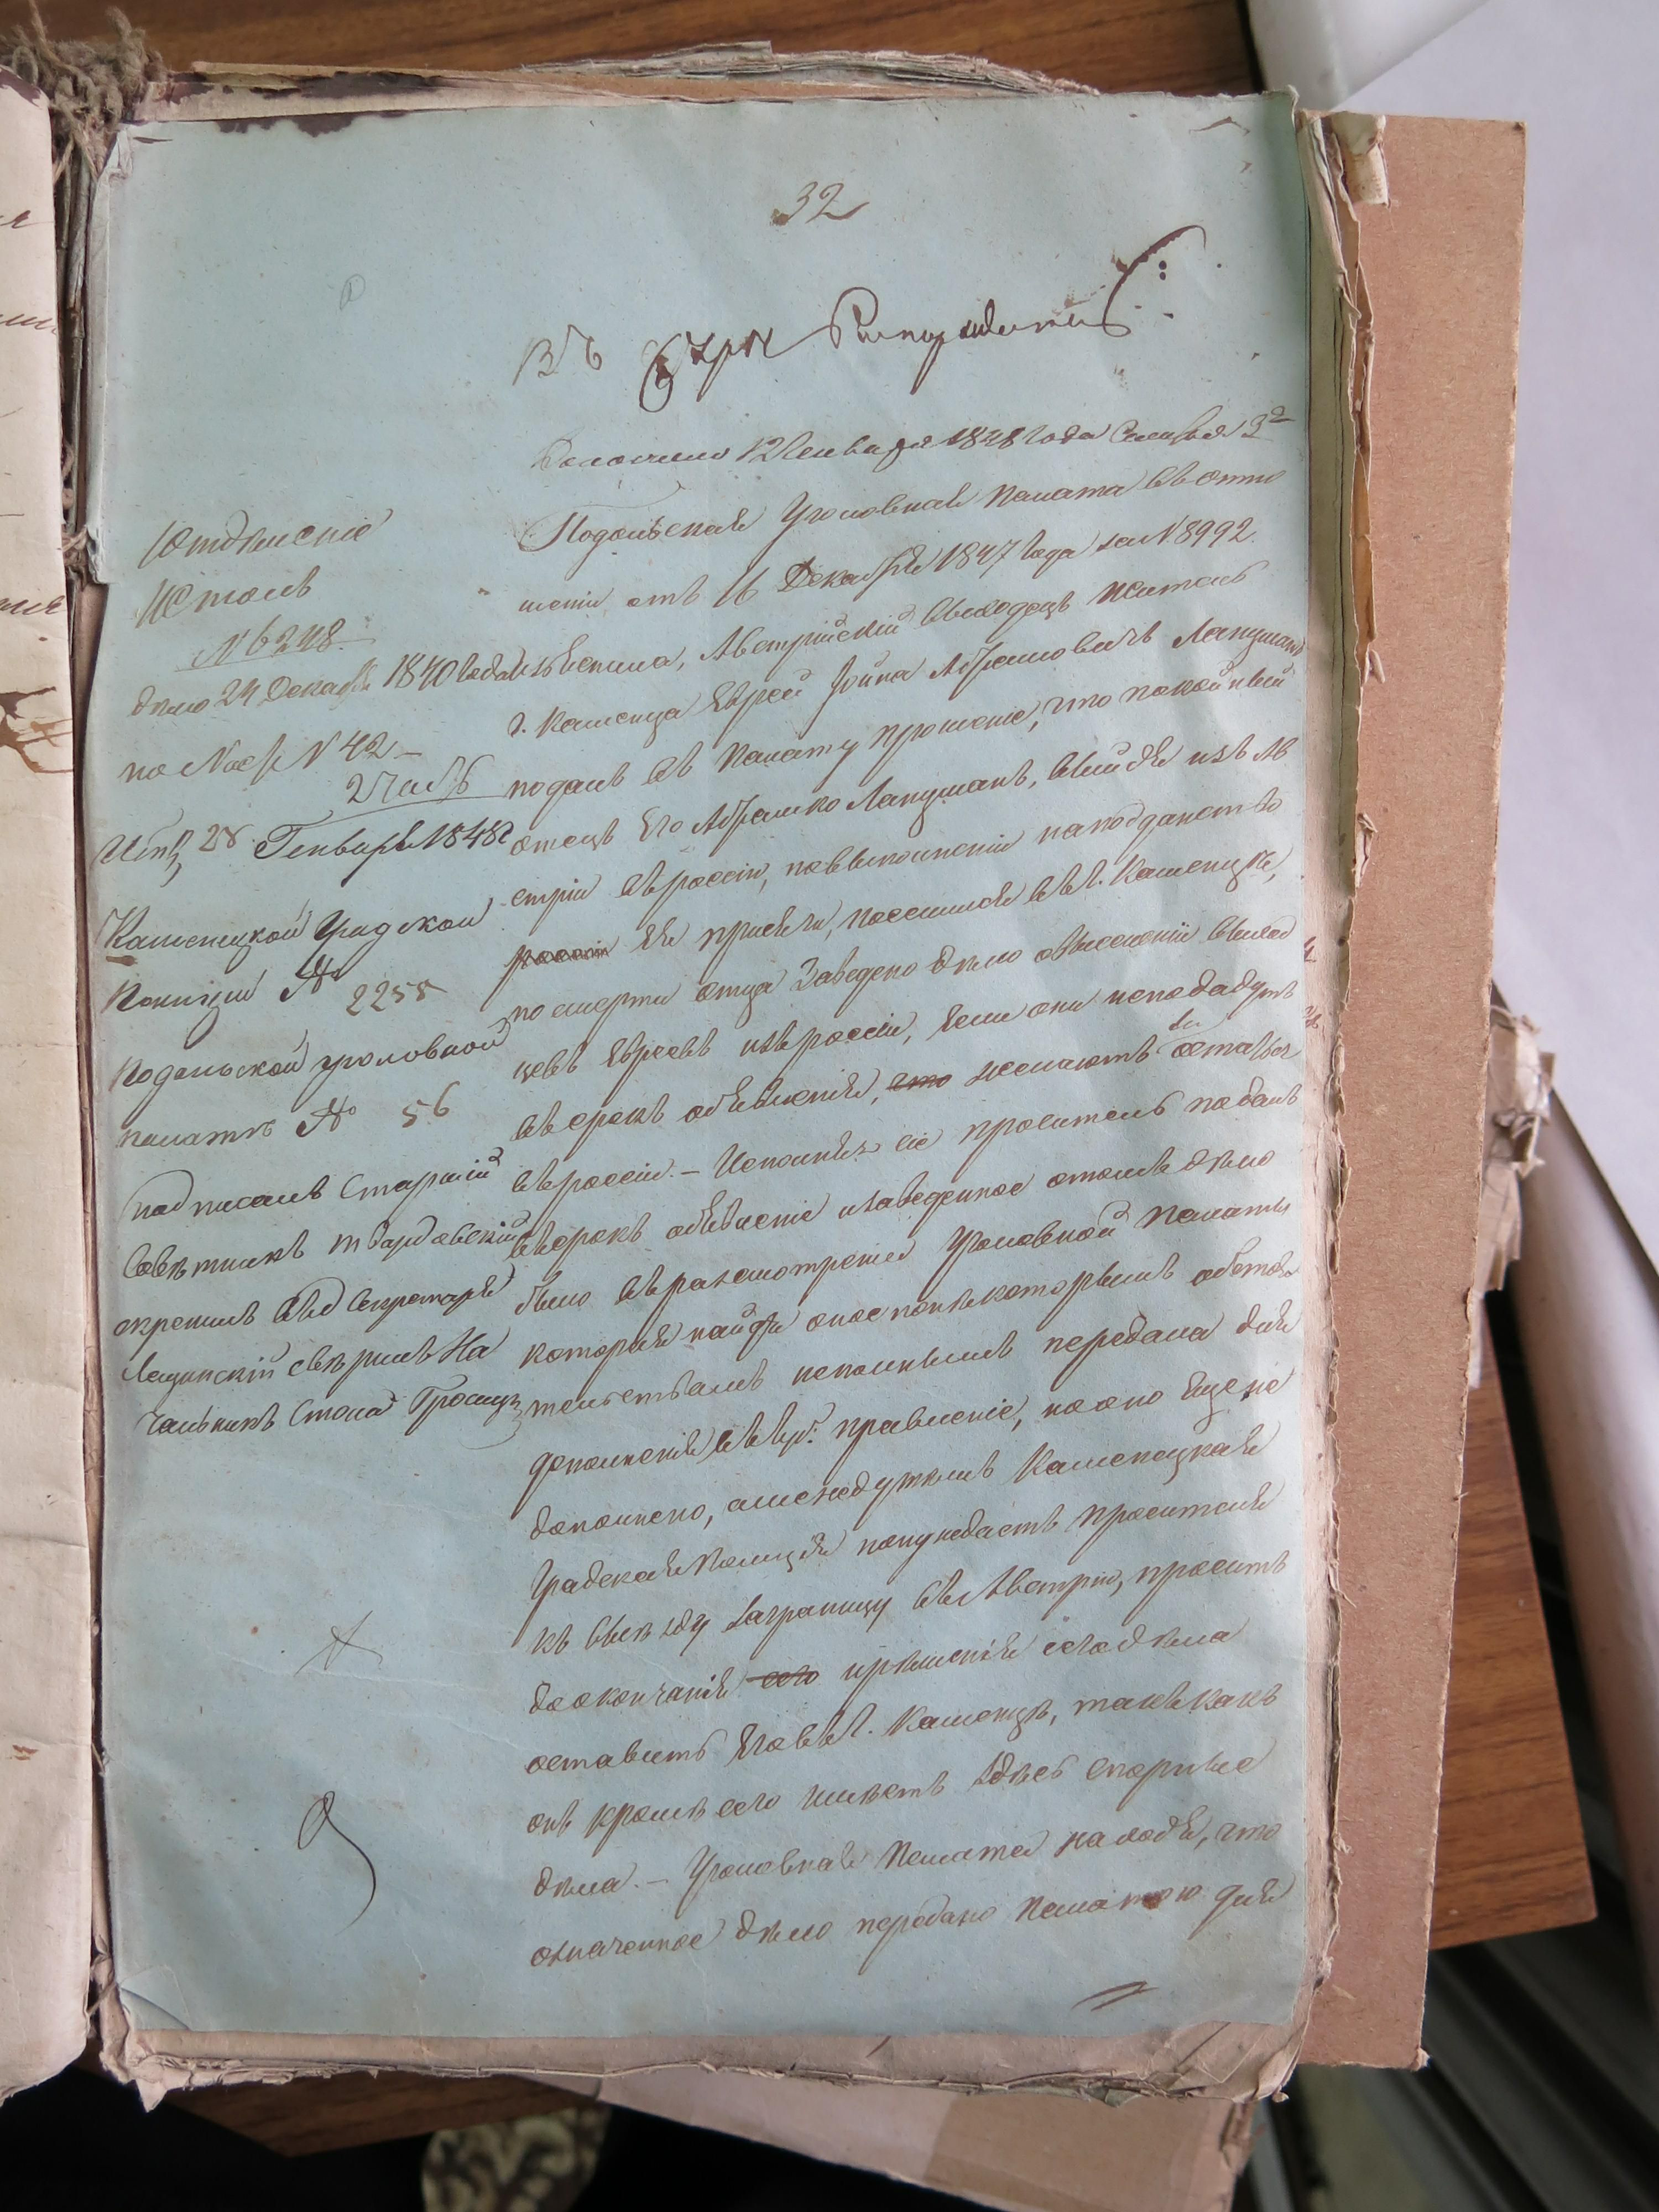 32
Въ
12 Генваря 1848 года Статья 3я
отдѣленіе
столъ
№ 6248
дѣло 24 Декаб 1840 года
по № 42
2 часть
28 Генваря 1848
Каменецкой Градской
Полиціи №
2255
Подольской уголовной
палатѣ № 56
подписалъ Старшій
Совѣтникъ Твардовскій
скрепилъ Секретарь
свѣрилъ На
чальникъ Стола
Подольская Уголовная Палата въ отно
шеніи отъ 16 Декабря 1847 года за № 8992.
Австрійскій выходецъ житель
г. Каменца Еврей Іойна Абрамовичъ Лапцманъ
подалъ въ Палату прошеніе, что покойный
отецъ его Абрамко Лапцманъ, выйдя изъ Ав
стріи въ россію, по выполненіи на подданство
россіи ея присяги, поселился въ г. Каменцѣ,
по смерти отца заведено дѣло о высылкѣ выход
цевъ Евреевъ изъ россіи, если они неподадутъ
въ срокъ объявленія, что желаютъ остаться
въ россіи. – Исполняя сіе проситель подалъ
въ срокъ объявленіе и заведенное о томъ дѣло
было въ разсмотреніи Уголовной Палаты
которая найдя оное по нѣкоторымъ обстоя
тельствамъ неполнымъ передала для
дополненія въ губ: правленіе, но оно еще не
дополнено, а между тѣмъ Каменецкая
Градская Полиція понуждаетъ просителя
къ выѣзду заграницу въ Австрію, проситъ
до окончанія его и рѣшенія сего дѣла
оставить его въ г. Каменцѣ, такъ какъ
онъ кромѣ сего имѣетъ здѣсь спорные
дѣла. – Уголовная Палата находя, что
означенное дѣло передано Палатою для